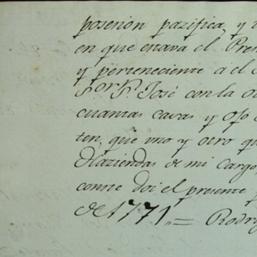 posesion pazifica, y
en que estava el Pre
y perteneciente a el
Por P. José con la
cuantas cavas y ojo
ten, que uno y otro qu
Haziendas de mi cargo
conste doi el presente
de 1771. = Rodr